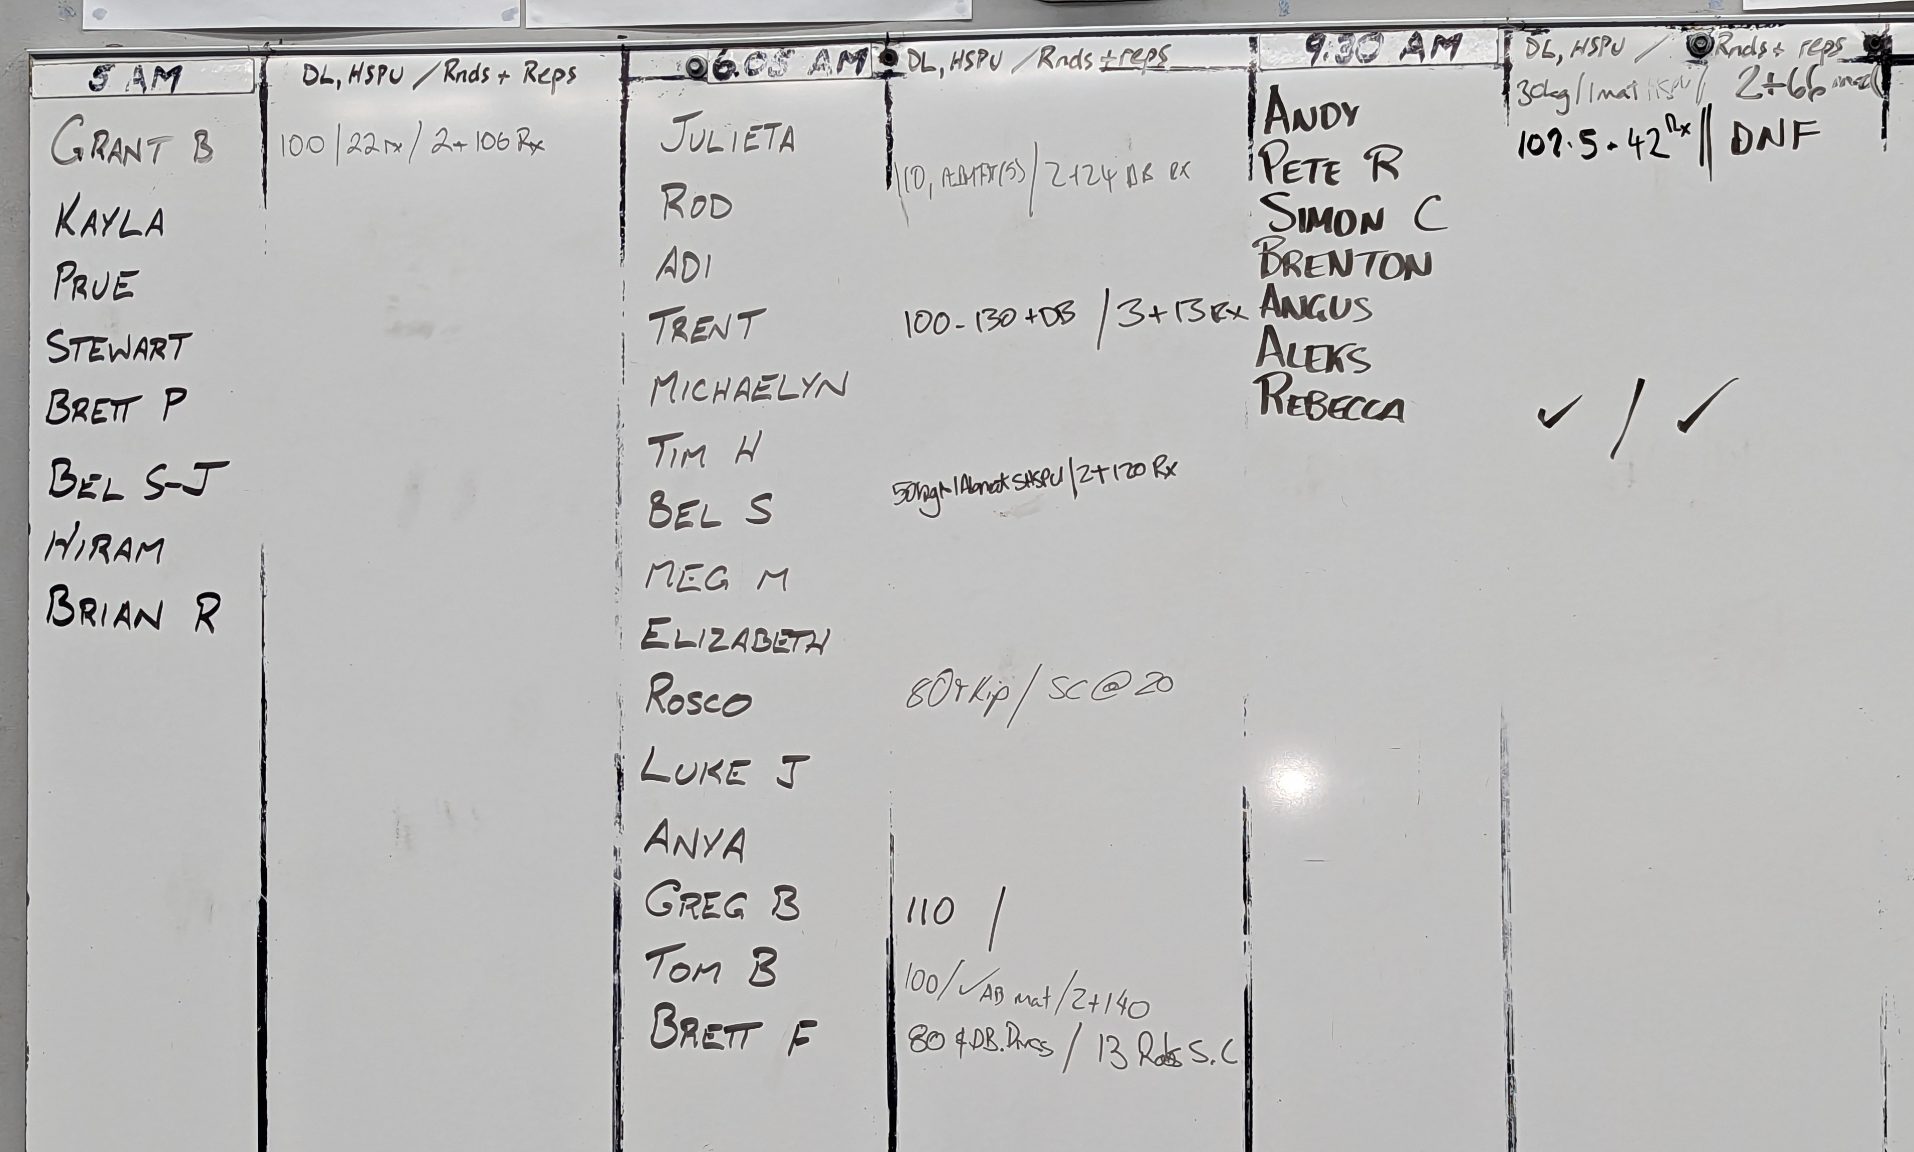 5 AM
DL, HSPU / Rnds + Reps
GRANT B 100 / 22 rx / 2+106 Rx
KAYLA
PRUE
STEWART
BRETT P
BEL S-J
HIRAM
BRIAN R
6.05 AM
DL, HSPU / Rnds + reps
JULIETA
110, / 2+24 DB RX
ROD
ADI
TRENT 100-130 + DB / 3+13 Rx
MICHAELYN
TIM H
BEL S 50kg + 1Abmat SHSPU / 2+120 Rx
MEG M
ELIZABETH
ROSCO 80 + Kip / SC @ 20
LUKE J
ANYA
GREG B 110 /
TOM B 100 / ✓ AB mat / 2+140
BRETT F 80 & DB. Press / 13 Rds S.C
9.30 AM
DL, HSPU / Rnds + reps
ANDY 30kg / 1mat HSPU / 2+66
PETE R 107.5 - 42 Rx // DNF
SIMON C
BRENTON
ANGUS
ALEKS
REBECCA ✓ / ✓